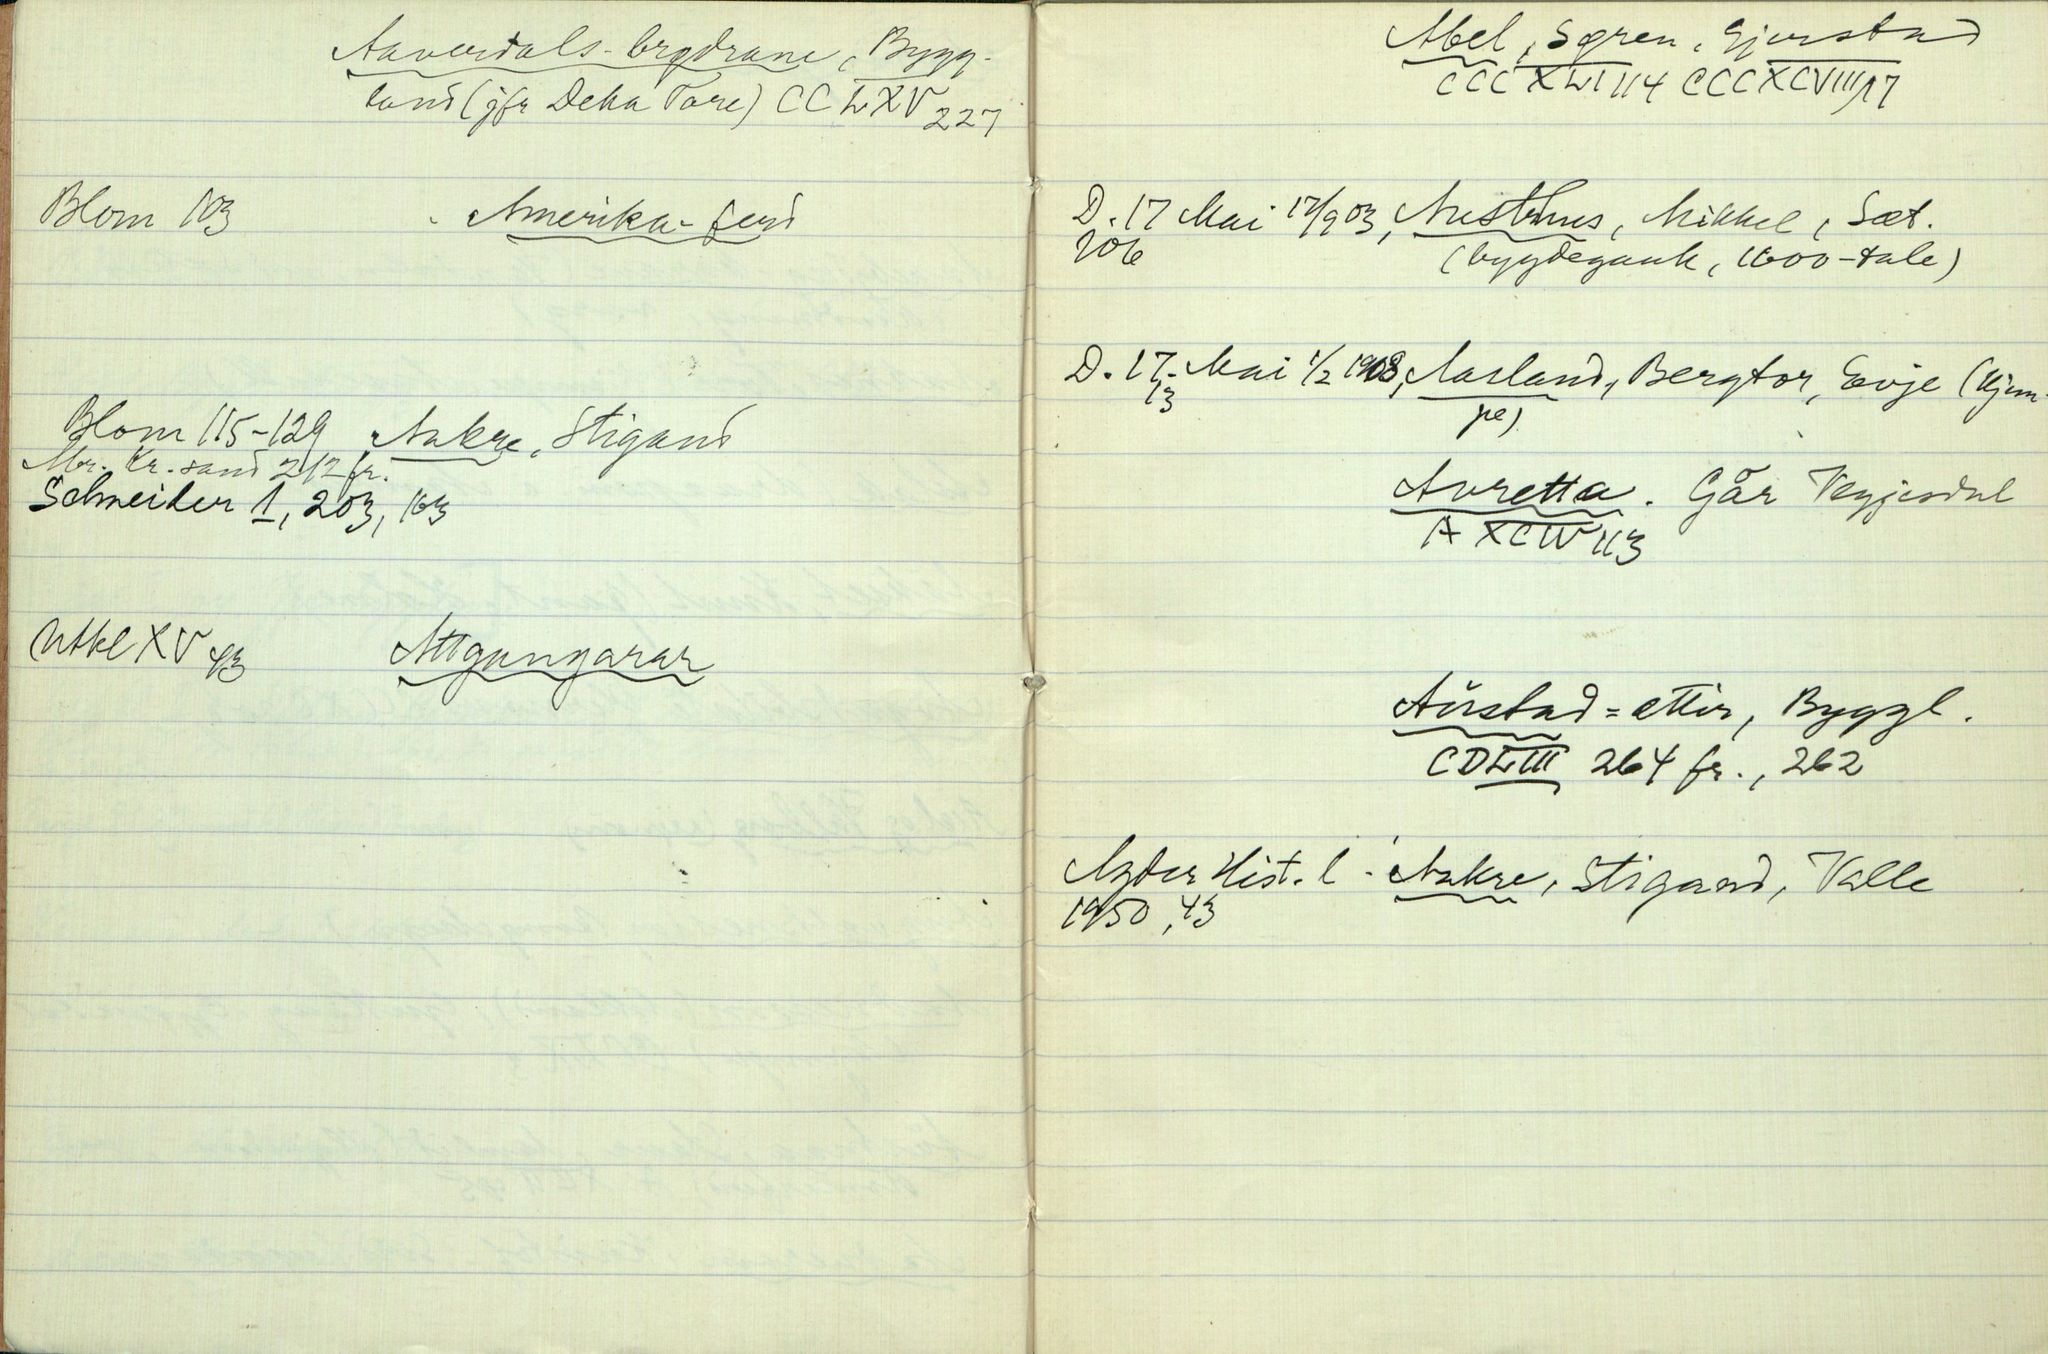 Aaverdals-brødrane, Bygg-
land (jfr Deka Tore) CCLXV 227
Blom 103 Amerika-ferd
Blom 115-129 Aakre, Stigand
Mr. Kr.sand 212 fr.
Schneider 1, 203, 163
Utkl XV 43 Attgangarar
Abel, Søren, Gjerstad
CCCXLI 114 CCCXCVIII 17
D. 17 Mai 17/9 03, Mikkel, Sæt.
206 (bygdegauk, 1600-tale)
D. 17. Mai 1/2 1908, Aasland, Bergtor, Evje (kjem-
13 pe)
Avretta. Går Vegjesdal
A XCIV 113
Austad-ætti, Byggl.
CDLIII 264 fr., 262
Agder Hist. l - Aakre, Stigand, Valle
1950, 43